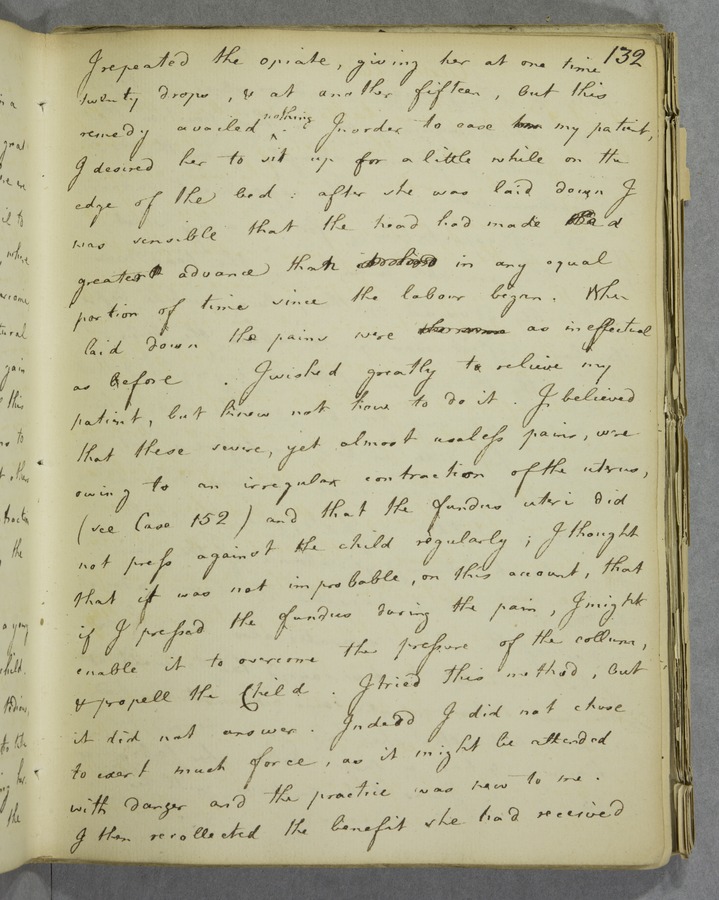 132
I repeated the opiate, giving her at one time
twenty drops, & at another fifteen, but this
remedy availed nothing. In order to ease my patient,
I desired her to sit up for a little while on the
edge of the bed: after she was laid down I
was sensible that the head had made a
greater advance than in any equal
portion of time since the labour began. When
laid down the pains were as ineffectual
as before. I wished greatly to relieve my
patient, but knew not how to do it. I believed
that these severe, yet almost useless pains, were
owing to an irregular contraction of the uterus,
(see Case 152) and that the fundus uteri did
not press against the child regularly; I thought
that it was not improbable, on this account, that
if I pressed the fundus during the pain, I might
enable it to overcome the pressure of the collum,
& propell the Child. I tried this method, but
it did not answer. Indeed I did not chuse
to exert much force, as it might be attended
with danger and the practice was new to me.
I then recollected the benefit she had received